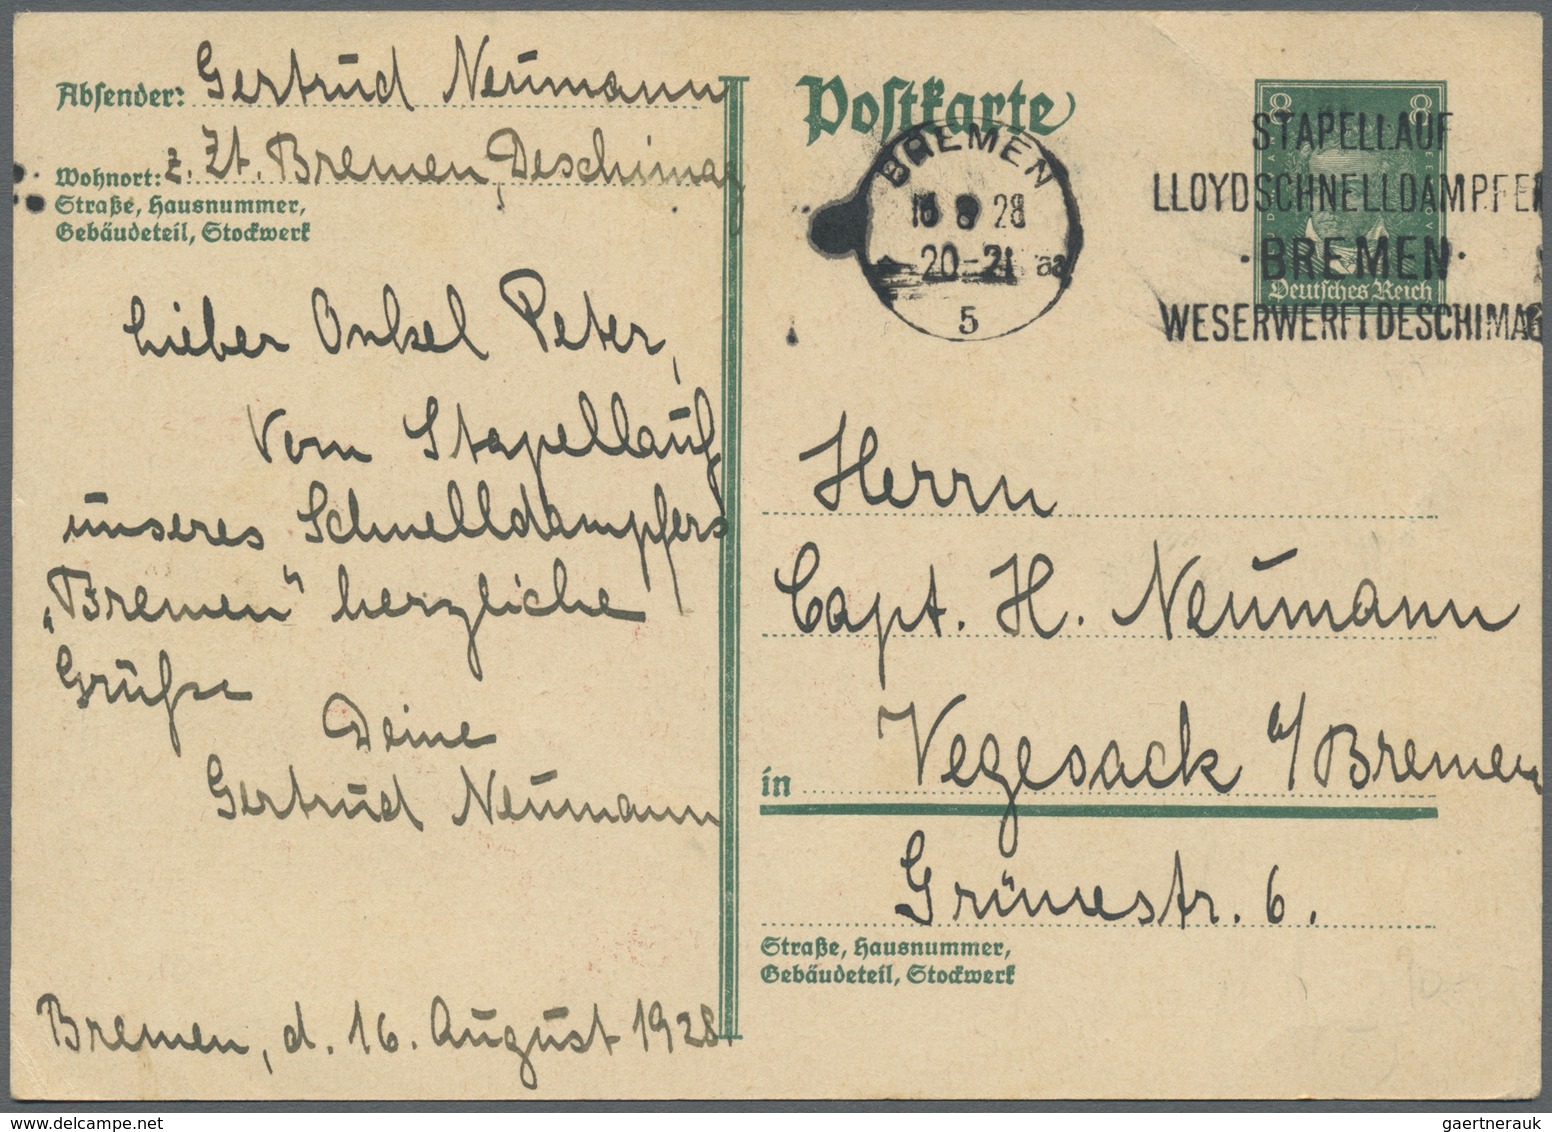 Absender: Gertrud Neumann
Wohnort: z. Zt. Bremen, Deschimag
Straße, Hausnummer,
Gebäudeteil, Stockwerk
Lieber Onkel Peter,
Vom Stapellauf
unseres Schnelldampfers
„Bremen“ herzliche
Grüße
Deine
Gertrud Neumann
Bremen, d. 16. August 1928.
Postkarte
BREMEN
16 8 28
20-21 aa
5
8 8
Deutsches Reich
STAPELLAUF
LLOYDSCHNELLDAMPFER
·BREMEN·
WESERWERFT DESCHIMAG
Herrn
Capt. H. Neumann
in Vegesack b/Bremen
Grünestr. 6.
Straße, Hausnummer,
Gebäudeteil, Stockwerk
gaertnerauk @ delcampe.net